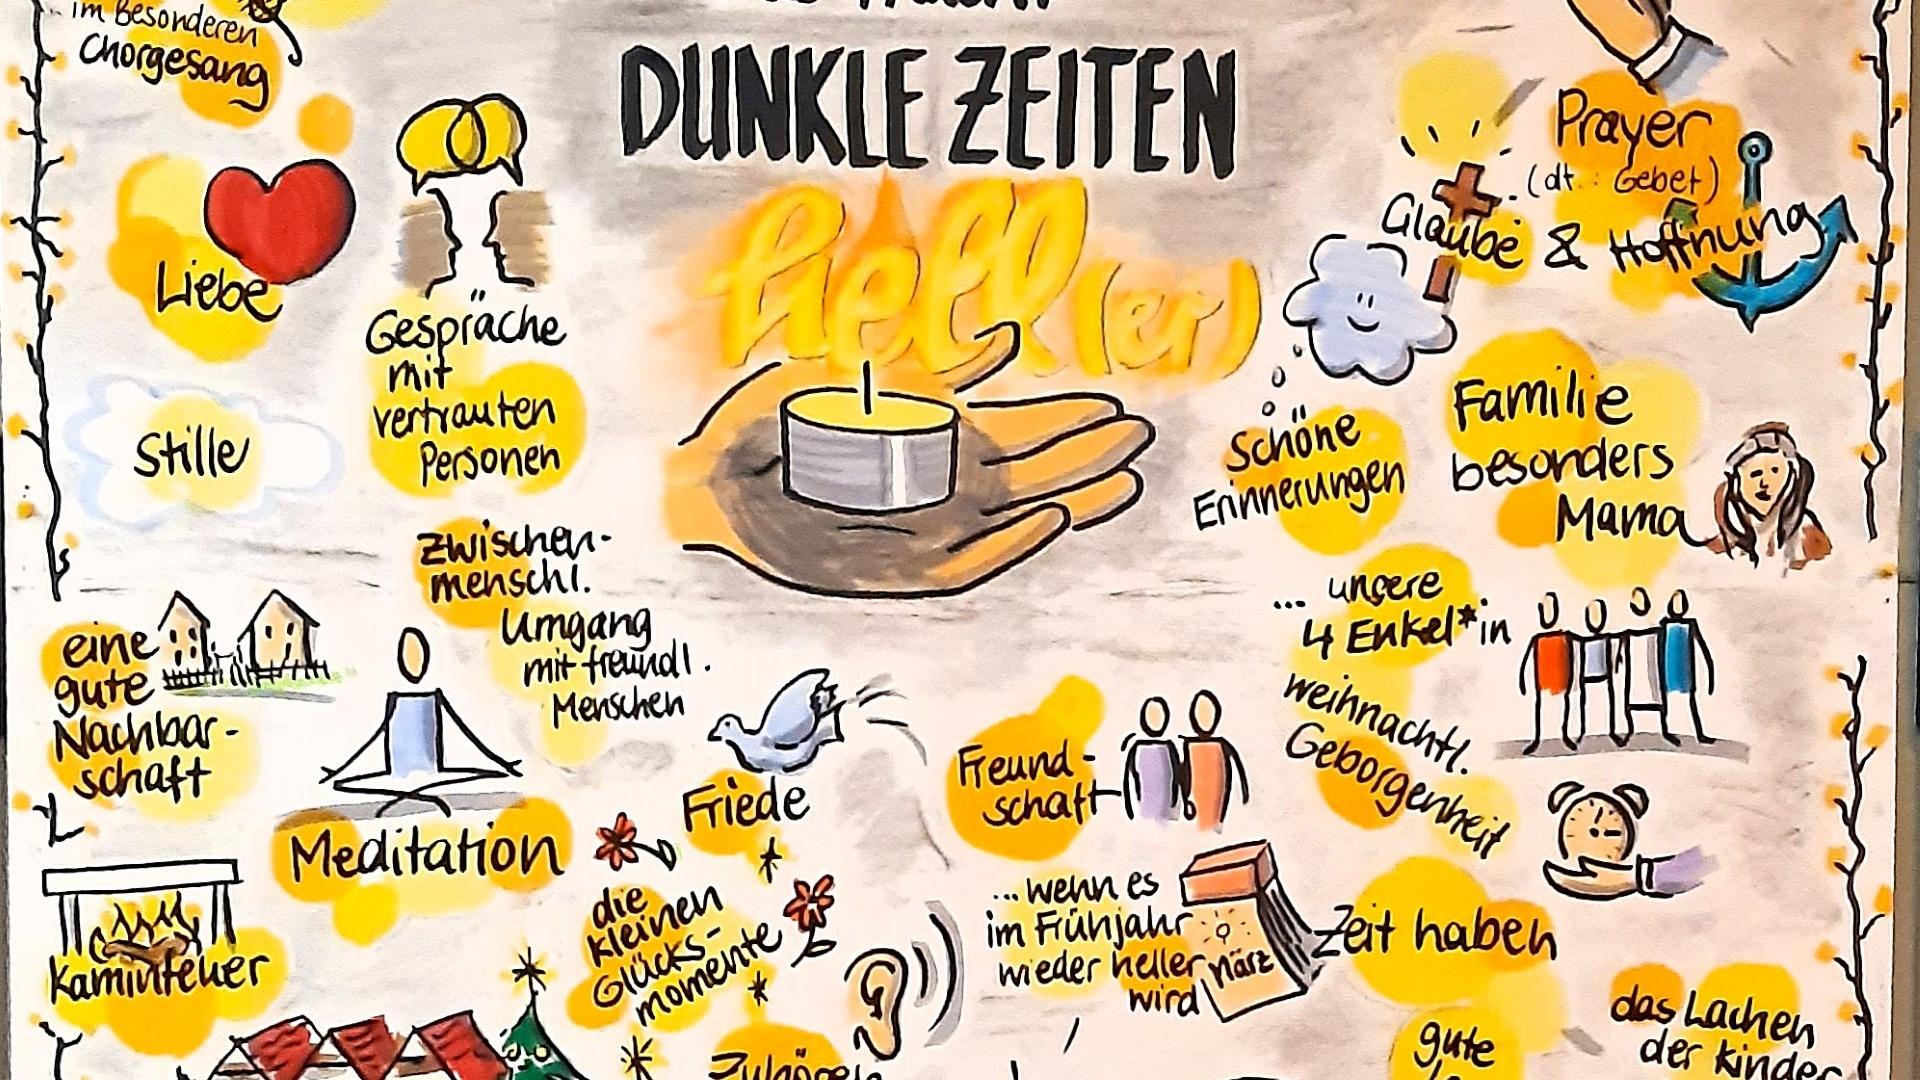 im Besonderen
Chorgesang
DUNKLE ZEITEN
hell(er)
Liebe
Gespräche
mit
vertrauten
Personen
Stille
Prayer
(dt.: Gebet)
Glaube & Hoffnung
Schöne
Erinnerungen
Familie
besonders
Mama
zwischen-
menschl.
Umgang
mit freundl.
Menschen
... unsere
4 Enkel*in
eine
gute
Nachbar-
schaft
weihnachtl.
Geborgenheit
Friede
Freund-
schaft
Meditation
die
kleinen
Glücks-
momente
...wenn es
im Frühjahr
wieder heller
wird
März
Zeit haben
Kaminfeuer
das Lachen
der Kinder
gute